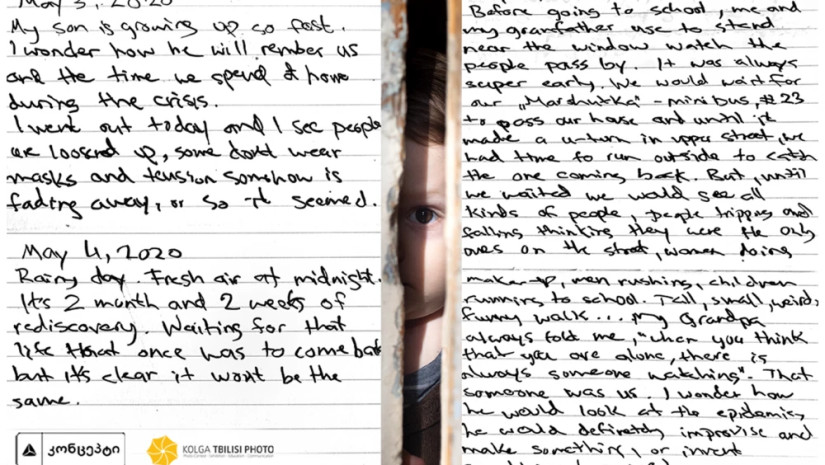 May 3, 2020
My son is growing up so fast.
I wonder how he will rember us
and the time we spend at home
during the crisis.
I went out today and I see people
are loosend up, some dont wear
masks and tension somhow is
fading away, or so it seemed.
May 4, 2020
Rainy day. Fresh air at midnight.
Its 2 month and 2 weeks of
rediscovery. Waiting for that
life that once was to come back
but it's clear it wont be the
same.
კონცეპტი
KOLGA TBILISI PHOTO
Before going to school, me and
my grandfather use to stend
near the window watch the
people pass by. It was always
super early. We would wait for
our „Marshutka" - minibus, #23
to pass our house and until it
made a u-turn in upper street, we
had time to run outside to catch
the one coming back. But, until
we waited we would see all
kinds of people, people tripping and
falling thinking they were the only
ones on the street, women doing
make-up, men rushing, children
running to school. Tall, small, weird,
funny walk... My Grandpa
always told me, "when you think
that you are alone, there is
always someone watching". That
someone was us. I wonder how
he would look at the epidemic,
he would definetely improvise and
make something, or invent